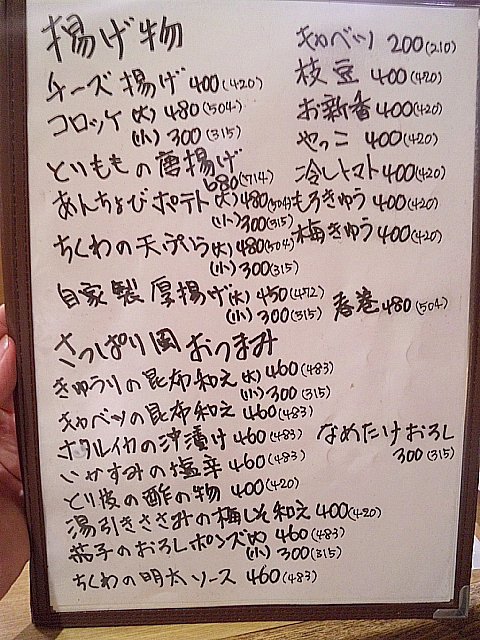 揚げ物
チーズ揚げ 400(420)
コロッケ (大) 480(504)
(小) 300(315)
とりももの唐揚げ
680(714)
あんちょびポテト (大) 480(504)
(小) 300(315)
ちくわの天ぷら (大) 480(504)
(小) 300(315)
自家製厚揚げ (大) 450(472)
(小) 300(315)
キャベツ 200(210)
枝豆 400(420)
お新香 400(420)
やっこ 400(420)
冷しトマト 400(420)
もろきゅう 400(420)
梅きゅう 400(420)
春巻 480(504)
さっぱり おつまみ
きゅうりの昆布和え (大) 460(483)
(小) 300(315)
キャベツの昆布和え 460(483)
ホタルイカの沖漬け 460(483)
いかすみの塩辛 460(483)
とり皮の酢の物 400(420)
湯引きささみの梅しそ和え 400(420)
茄子のおろしポンズ (大) 460(483)
(小) 300(315)
ちくわの明太ソース 460(483)
なめたけおろし
300(315)